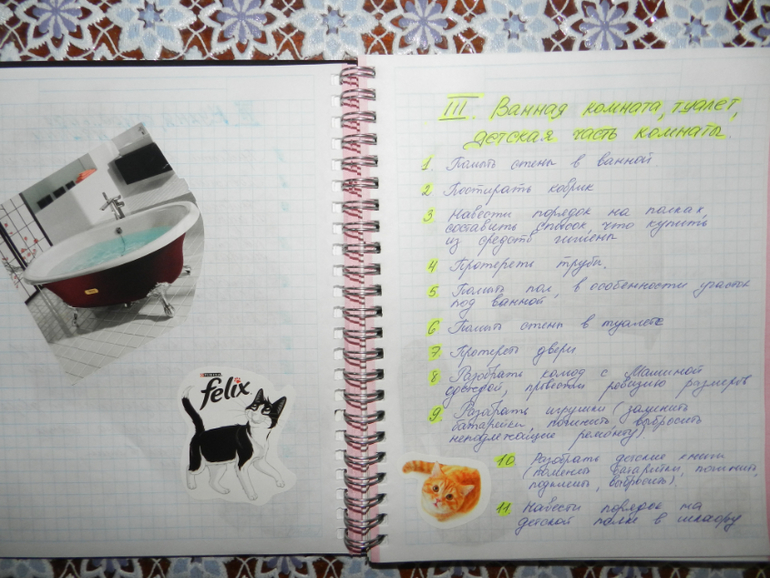 PURINA
felix
III. Ванная комната, туалет,
детская часть комнаты.
1. Помыть стены в ванной
2 Постирать коврик
3 Навести порядок на полках,
составить список, что купить
из средств гигиены
4 Протереть трубы.
5 Помыть пол, в особенности участок
под ванной,
6 Помыть стены в туалете
7. Протереть двери
8 Разобрать комод с Машиной
одеждой, провести ревизию размеров
9. Разобрать игрушки (заменить
батарейки, починить, выбросить
неподлежащие ремонту)
10 Разобрать детские книги
(поменять батарейки, починить,
подклеить, выбросить)
11. Навести порядок на
детской полке в шкафу